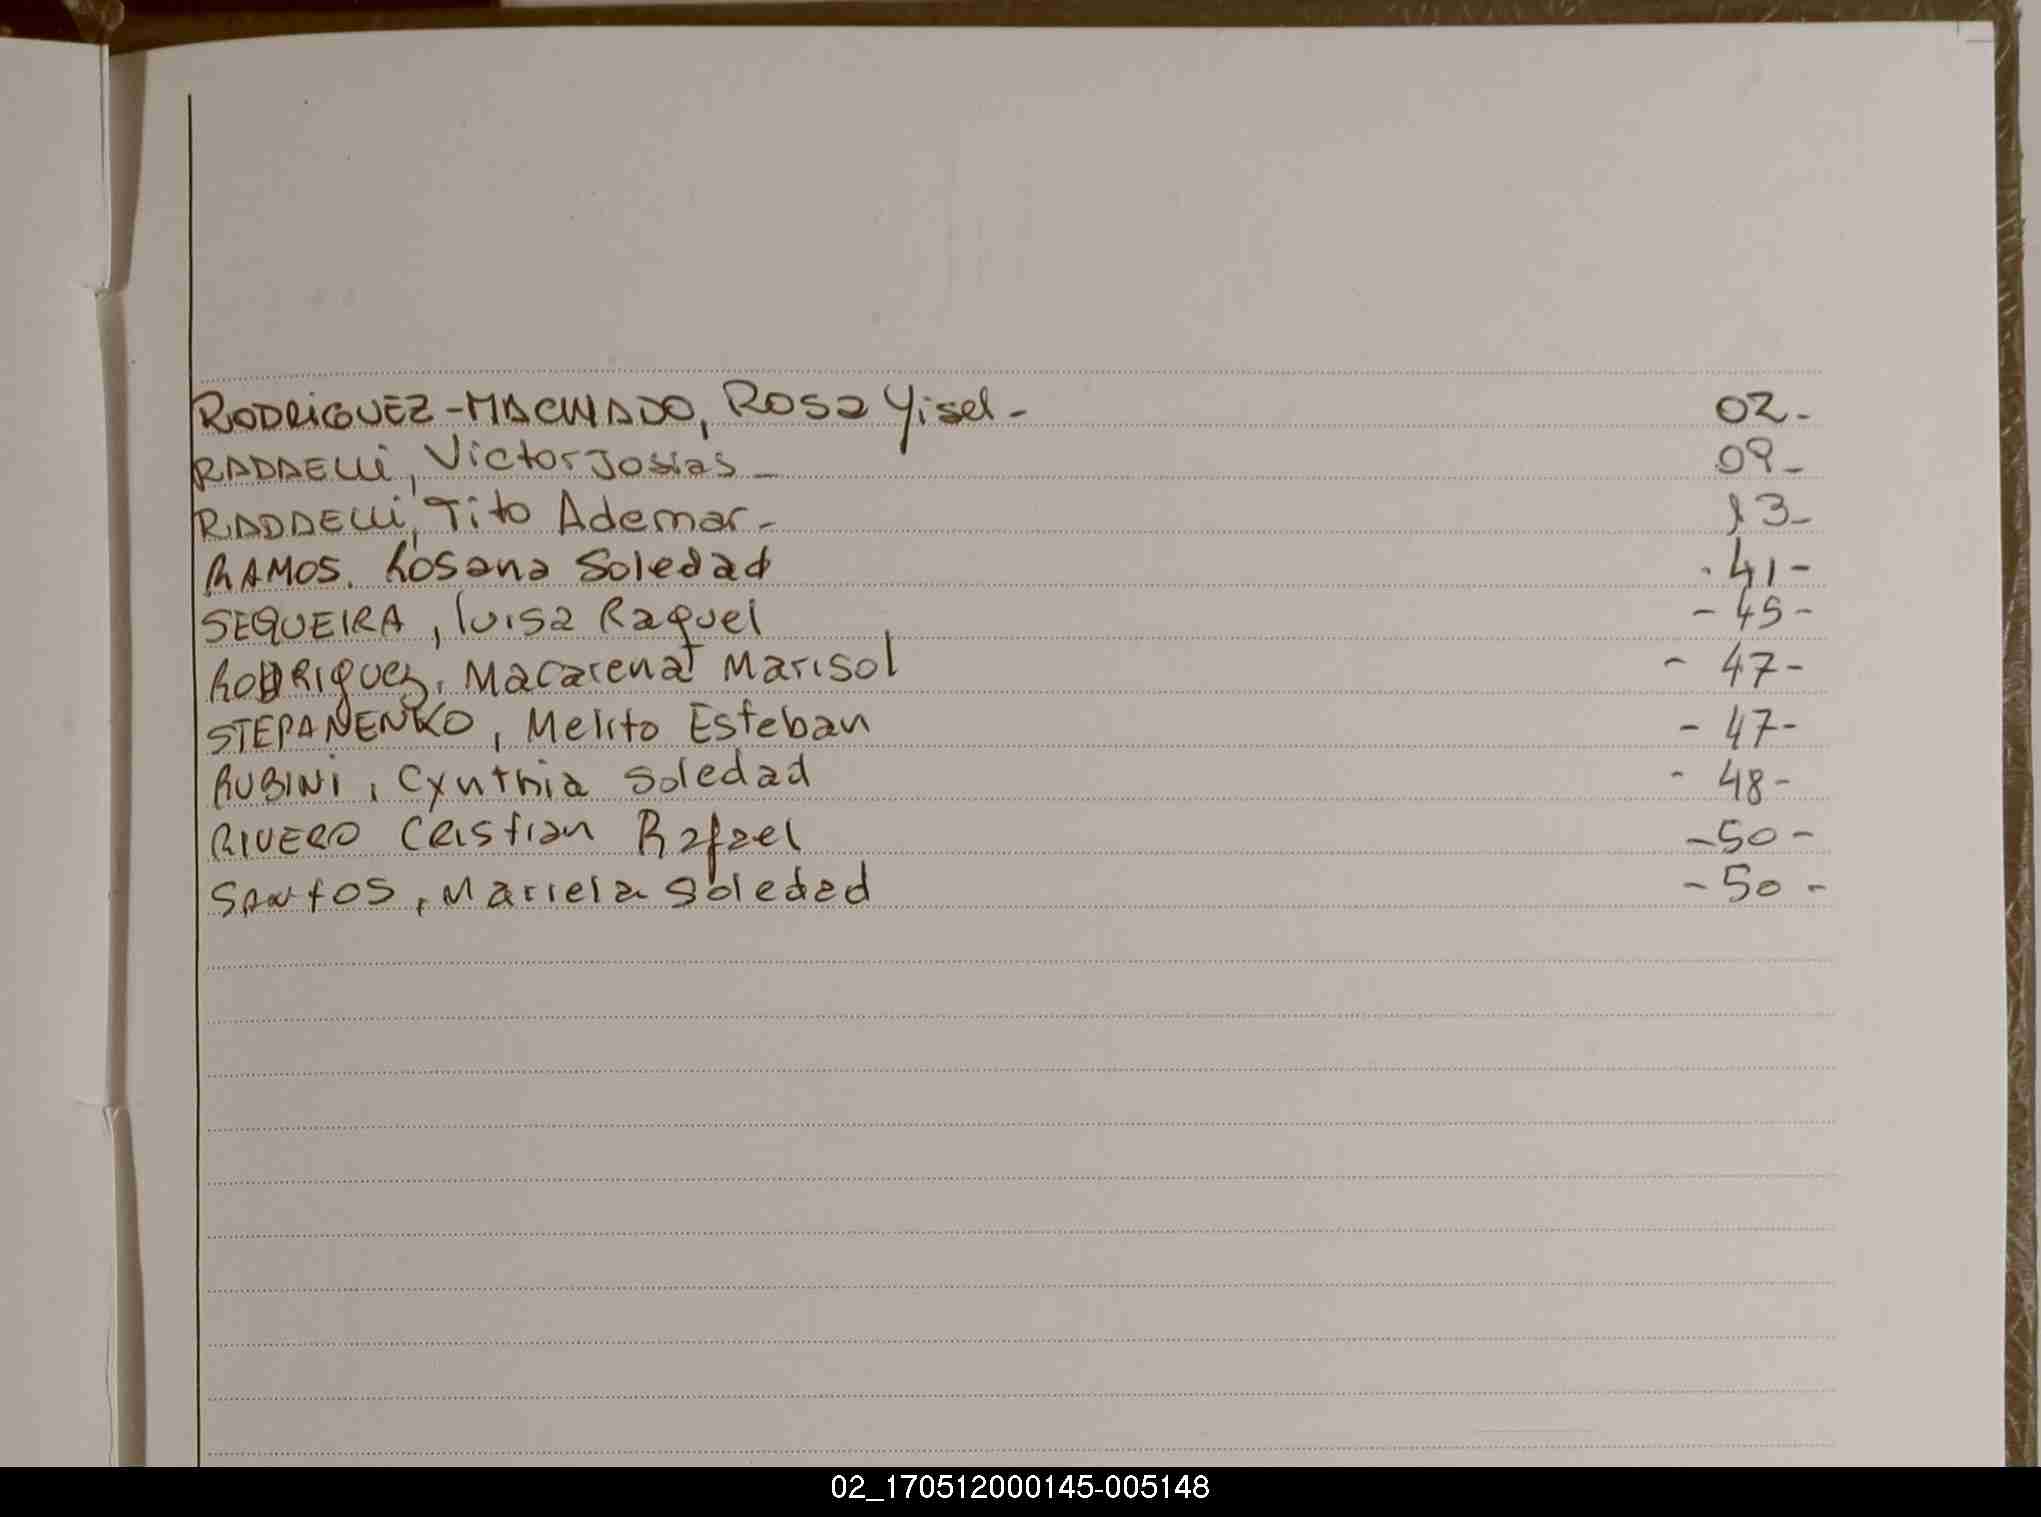 RODRIGUEZ-MACHADO, Rosa Yisel- 02-
RADAELLI, Victor Josias- 09-
RADAELLI, Tito Ademar- 13-
RAMOS. Rosana Soledad .41-
SEQUEIRA, Luisa Raquel -45-
RODRIGUEZ, Macarena Marisol -47-
STEPANENKO, Melito Esteban -47-
RUBINI, Cynthia Soledad -48-
RIVERO Cristian Rafael -50-
SANTOS, Mariela Soledad -50-
02_170512000145-005148